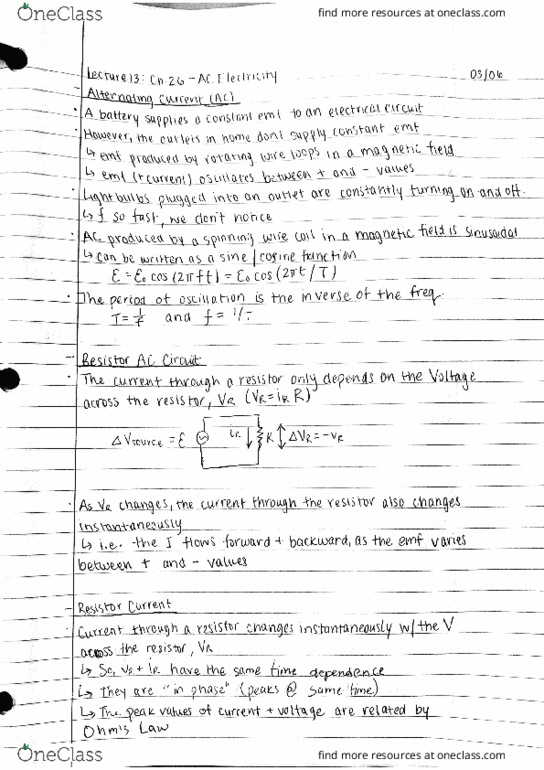 OneClass
find more resources at oneclass.com
Lecture 13: Ch. 26 - AC Electricity 03/06
- Alternating Current (AC)
· A battery supplies a constant emf to an electrical circuit
· However, the outlets in home don't supply constant emf
↳ emf produced by rotating wire loops in a magnetic field
↳ emf (+ current) oscillates between + and - values
· Light bulbs plugged into an outlet are constantly turning on and off.
↳ f so fast, we don't notice
· AC produced by a spinning wire coil in a magnetic field is sinusoidal
↳ can be written as a sine/cosine function
ℰ = ℰ₀ cos (2πft) = ℰ₀ cos (2πt/T)
· The period of oscillation is the inverse of the freq.
T = 1/f and f = 1/T
- Resistor AC Circuit
· The current through a resistor only depends on the Voltage
across the resistor, VR (VR = iR R)
ΔVsource = ℰ iR R ΔVR = -VR
· As VR changes, the current through the resistor also changes
instantaneously
↳ i.e. the I flows forward + backward, as the emf varies
between + and - values
- Resistor Current
· Current through a resistor changes instantaneously w/ the V
across the resistor, VR
↳ So, VR + iR have the same time dependence
↳ They are "in phase" (peaks @ same time)
↳ The peak values of current + voltage are related by
Ohm's Law
OneClass
find more resources at oneclass.com